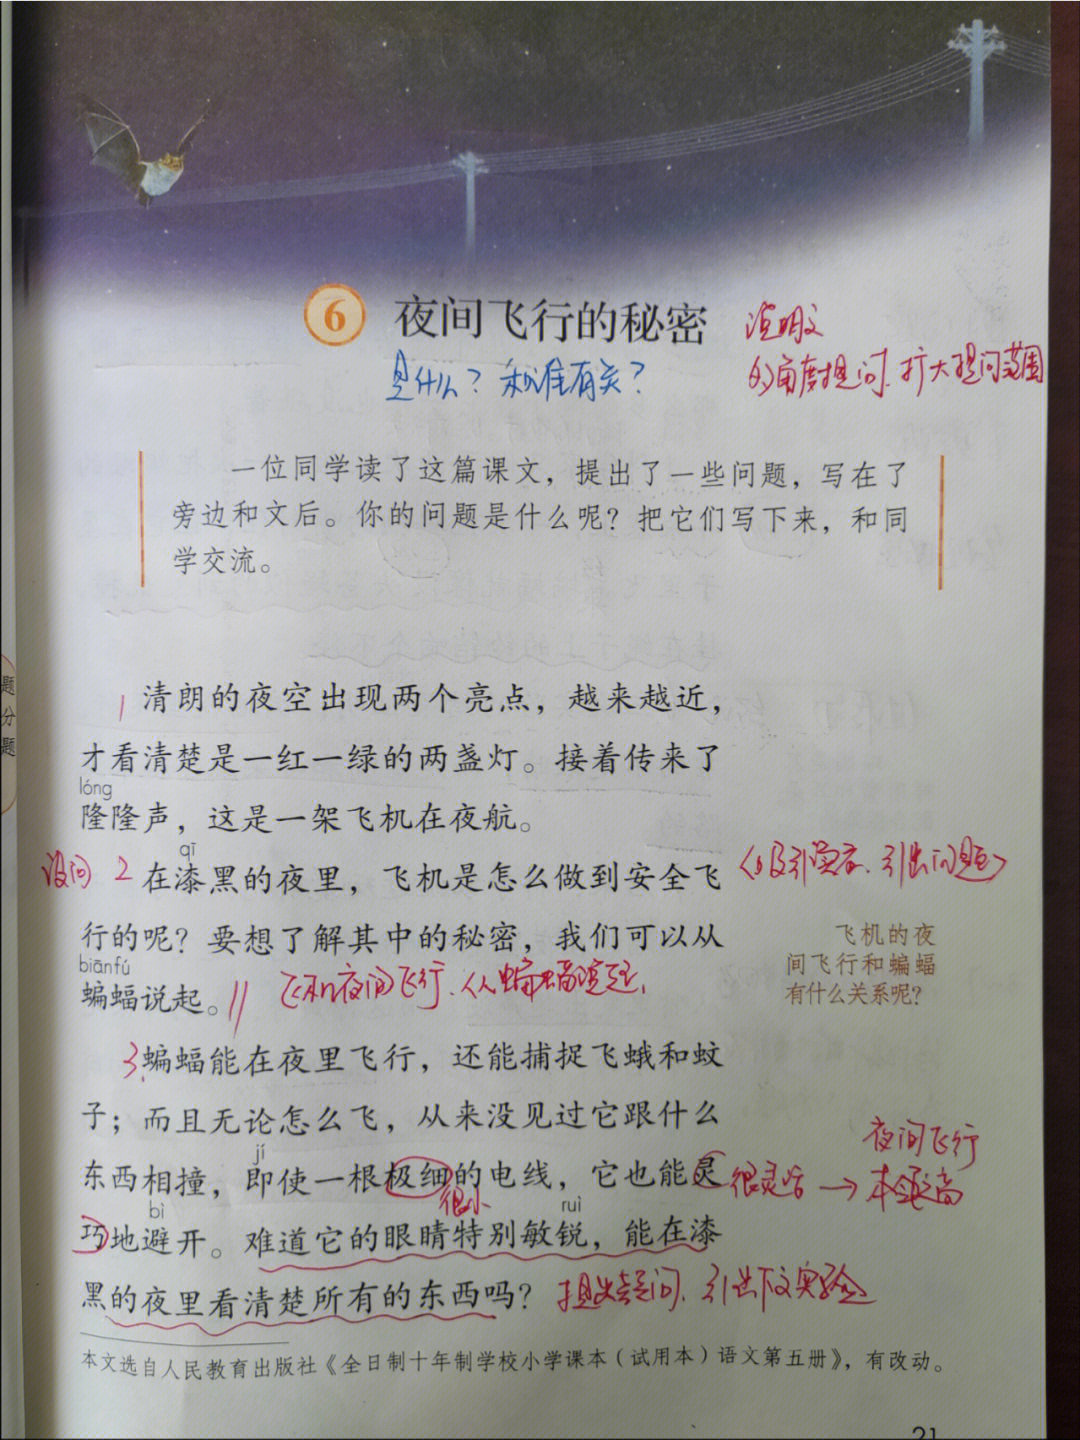 6 夜间飞行的秘密
说明文
是什么？和谁有关？
的角度提问、扩大提问范围
一位同学读了这篇课文，提出了一些问题，写在了
旁边和文后。你的问题是什么呢？把它们写下来，和同
学交流。
题
分
题
1 清朗的夜空出现两个亮点，越来越近，
才看清楚是一红一绿的两盏灯。接着传来了
lóng
隆隆声，这是一架飞机在夜航。
qī
设问 2 在漆黑的夜里，飞机是怎么做到安全飞
〈吸引读者、引出问题〉
行的呢？要想了解其中的秘密，我们可以从
biānfú
蝙蝠说起。
飞机夜间飞行、从蝙蝠说起、
飞机的夜
间飞行和蝙蝠
有什么关系呢？
3 蝙蝠能在夜里飞行，还能捕捉飞蛾和蚊
子；而且无论怎么飞，从来没见过它跟什么
jí
东西相撞，即使一根极细的电线，它也能灵
很小
很灵活 → 本领高
夜间飞行
bì ruì
巧地避开。难道它的眼睛特别敏锐，能在漆
黑的夜里看清楚所有的东西吗？
提出疑问、引出下文实验
本文选自人民教育出版社《全日制十年制学校小学课本（试用本）语文第五册》，有改动。
21